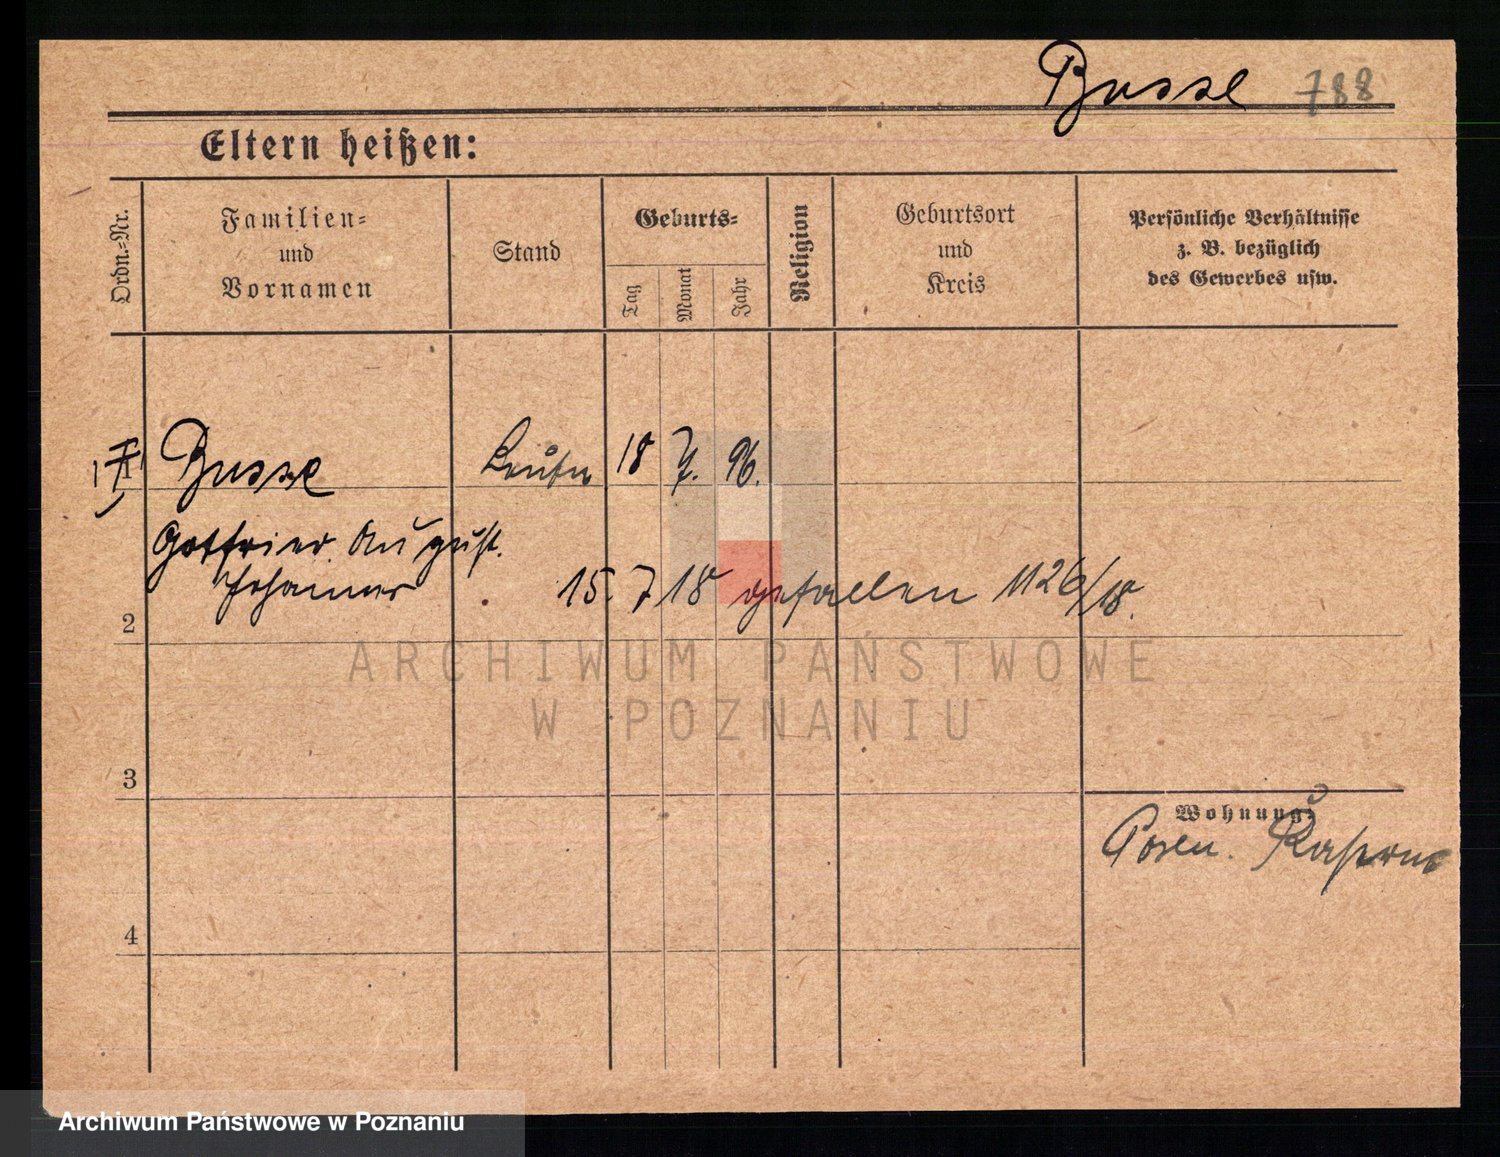 Busse 788
Eltern heißen:
Ordn.=Nr.
Familien=
und
Vornamen
Stand
Geburts=
Tag
Monat
Jahr
Religion
Geburtsort
und
Kreis
Persönliche Verhältnisse
z. B. bezüglich
des Gewerbes usw.
1 Busse Leutn 18 7. 96.
Gottfried August
Johannes
15. 7 18 gefallen 1126/18.
2
ARCHIWUM PAŃSTWOWE
W POZNANIU
3
Wohnung:
Posen. Kaserne
4
Archiwum Państwowe w Poznaniu